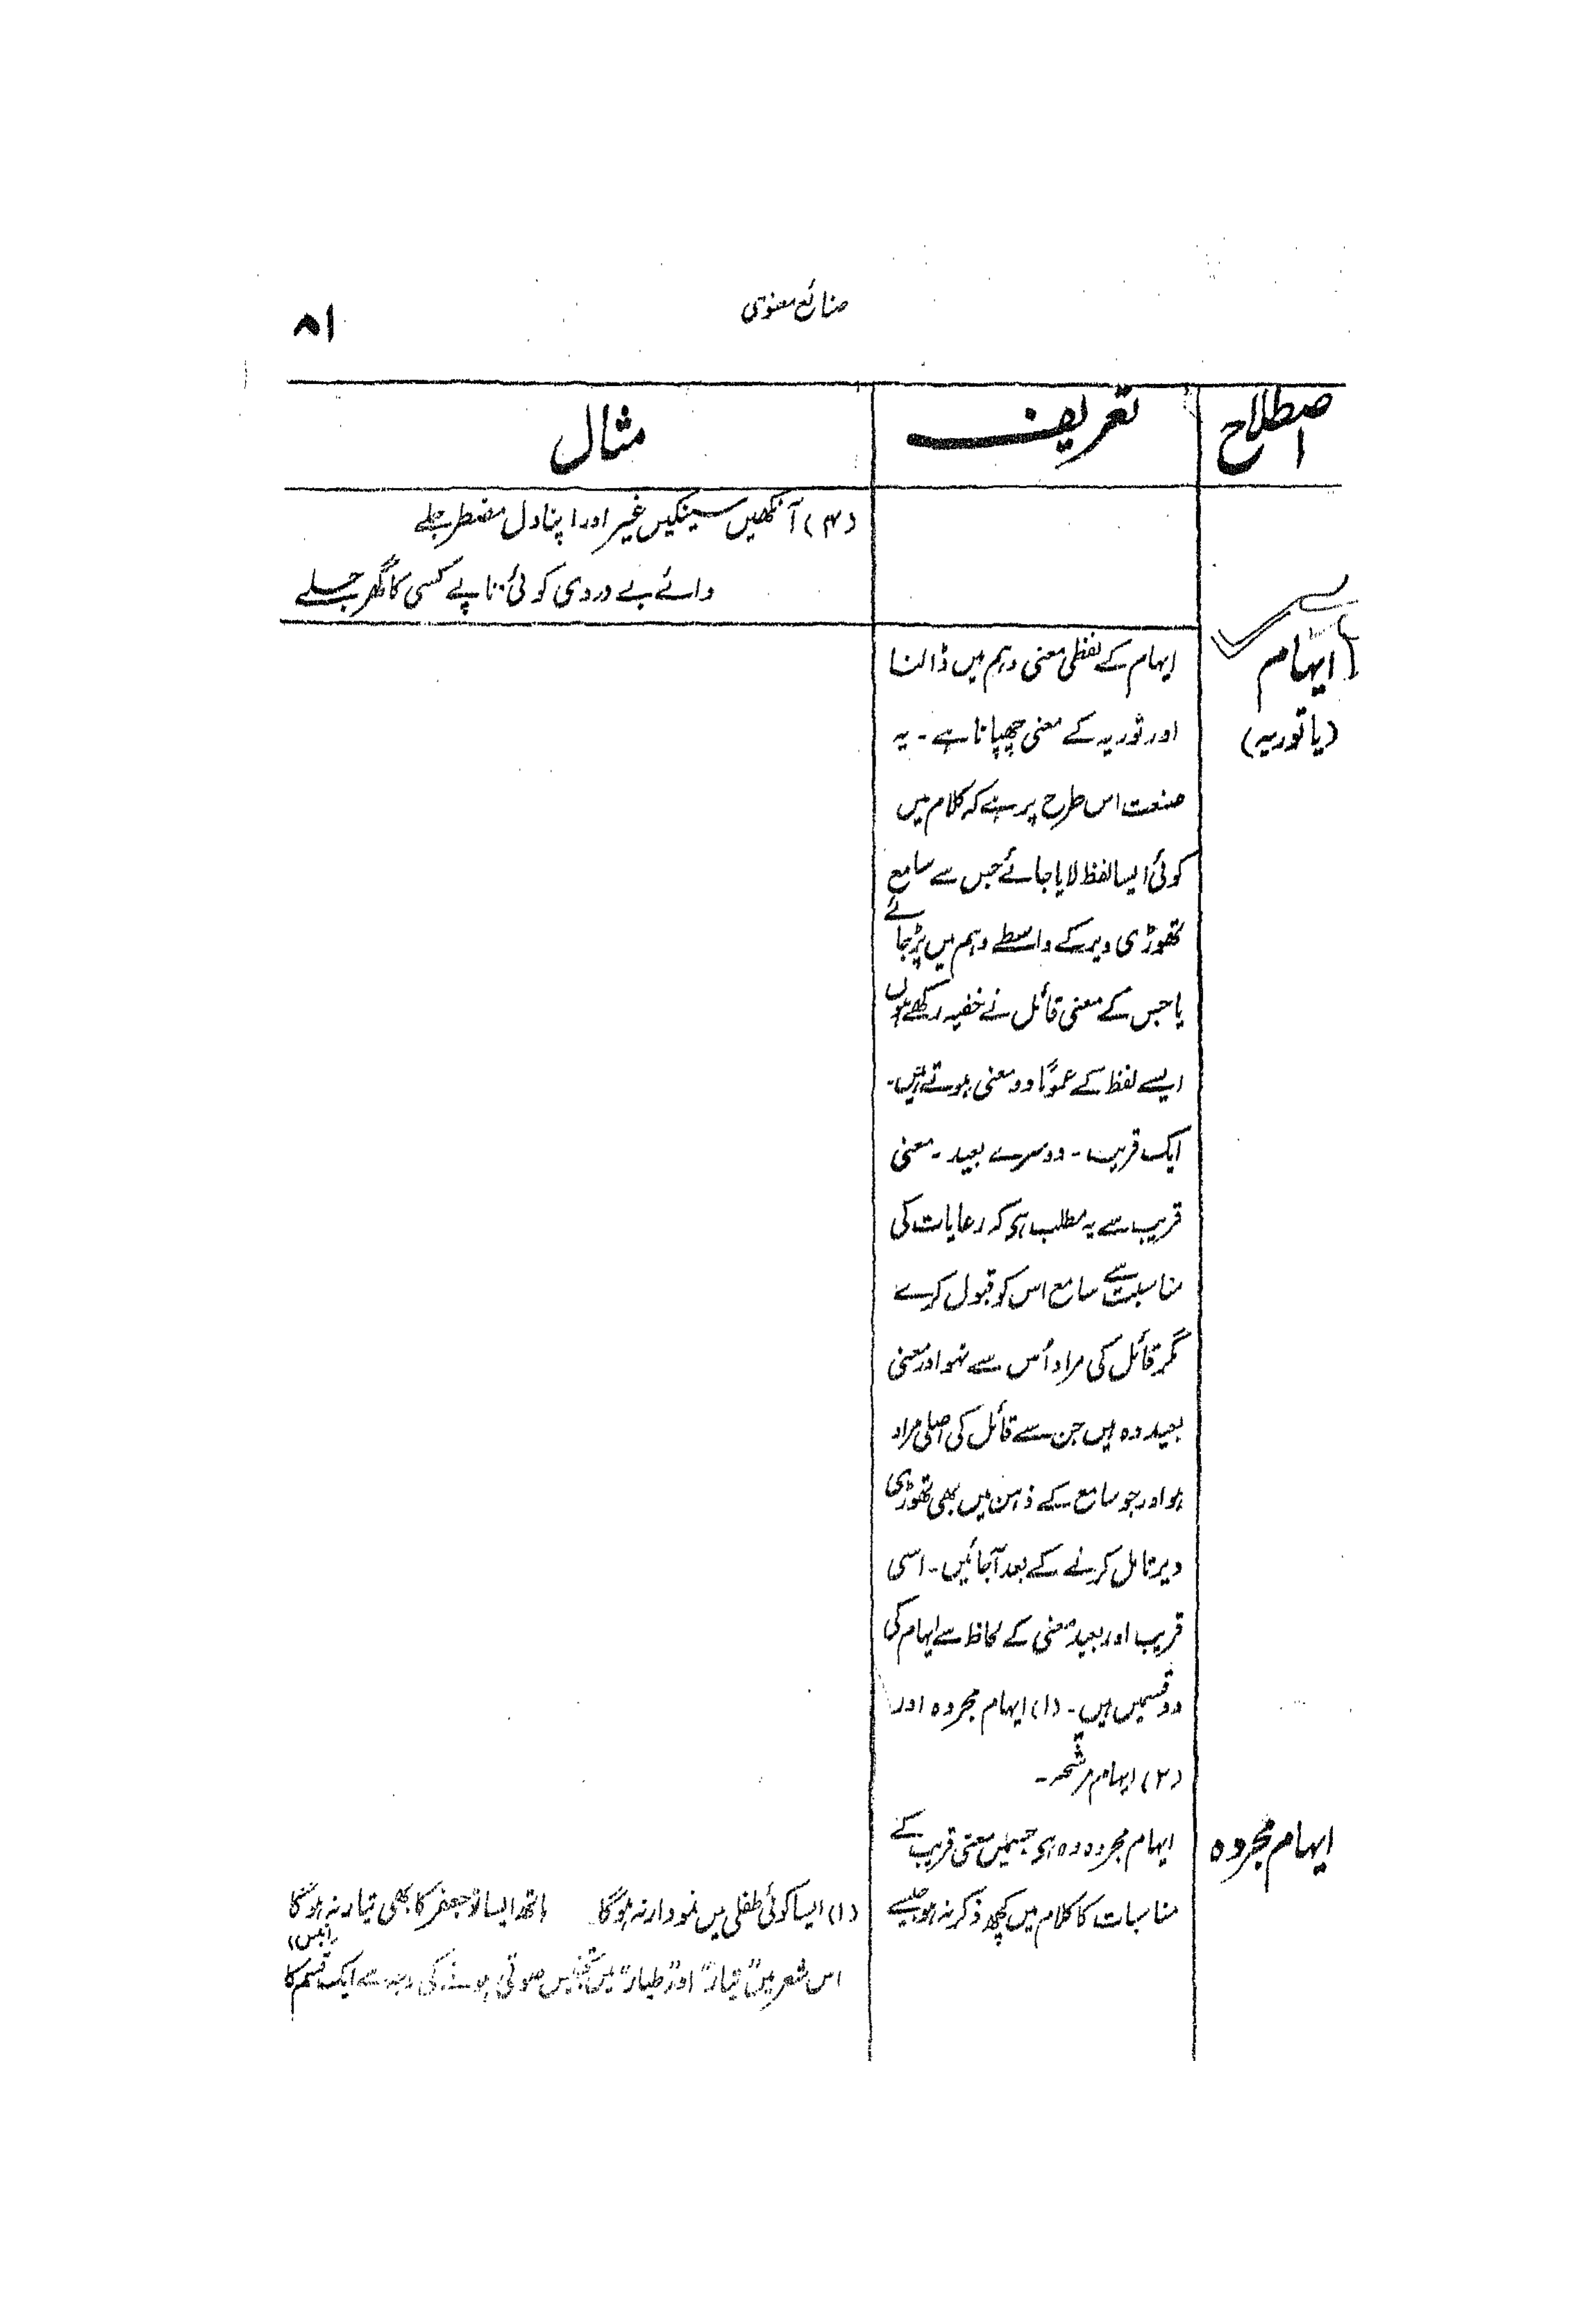 صنائع معنوی
۸۱
اصطلاح
تعریف
مثال
(۴) آنکھیں سینکیں غیر اور اپنا دل مضطر جلے
وائے بے دردی کوئی تاپے کسی کا گھر جلے
ایہام
(یا توریہ)
ایہام کے لفظی معنی وہم میں ڈالنا
اور توریہ کے معنی چھپانا ہے۔ یہ
صنعت اس طرح پر ہے کہ کلام میں
کوئی ایسا لفظ لایا جائے جس سے سامع
تھوڑی دیر کے واسطے وہم میں پڑجائے
یا جس کے معنی قائل نے خفیہ رکھے ہوں
ایسے لفظ کے عموماً دو معنی ہوتے ہیں۔
ایک قریب۔ دوسرے بعید۔ معنی
قریب سے یہ مطلب ہی کہ رعایات کی
مناسبت سے سامع اس کو قبول کرے
مگر قائل کی مراد اُس سے نہو اور معنی
بعید وہ ہیں جن سے قائل کی اصلی مراد
ہو اور جو سامع کے ذہن میں بھی تھوڑی
دیر تامل کرنے کے بعد آجائیں۔ اسی
قریب اور بعید معنی کے لحاظ سے ایہام کی
دو قسمیں ہیں۔ (۱) ایہام مجردہ اور
(۲) ایہام مرشحہ۔
ایہام مجردہ
ایہام مجردہ وہ ہی جسمیں معنی قریب کے
مناسبات کا کلام میں کچھ ذکر نہ ہو جیسے
(۱) ایسا کوئی طفلی میں نمودار نہ ہوگا ہاتھ ایسا تو جعفر کا بھی تیار نہ ہوگا
(انیس)
اس شعر میں "تیار" اور "طیار" میں تجنیس صوتی ہونے کی وجہ سے ایک قسم کا